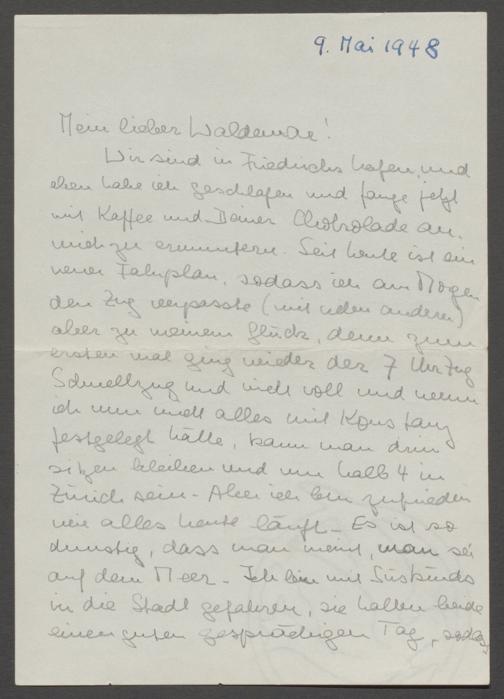 9. Mai 1948
Mein lieber Waldemar!
Wir sind in Friedrichshafen, und
eben habe ich geschlafen und fange jetzt
mit Kaffee und Deiner Chokolade an,
mich zu ermuntern. Seit heute ist ein
neuer Fahrplan, sodass ich am Morgen
den Zug verpasste (mit vielen anderen)
aber zu meinem Glück, denn zum
ersten mal ging wieder der 7 Uhr Zug
Schnellzug und nicht voll und wenn
ich nun nicht alles mit Konstanz
festgelegt hätte, kann man drin
sitzen bleiben und um halb 4 in
Zürich sein - Aber ich bin zufrieden
wie alles heute läuft - Es ist so
dunstig, dass man meint, man sei
auf dem Meer - Ich bin mit Süskinds
in die Stadt gefahren, sie hatten beide
einen guten gesprächigen Tag, sodass